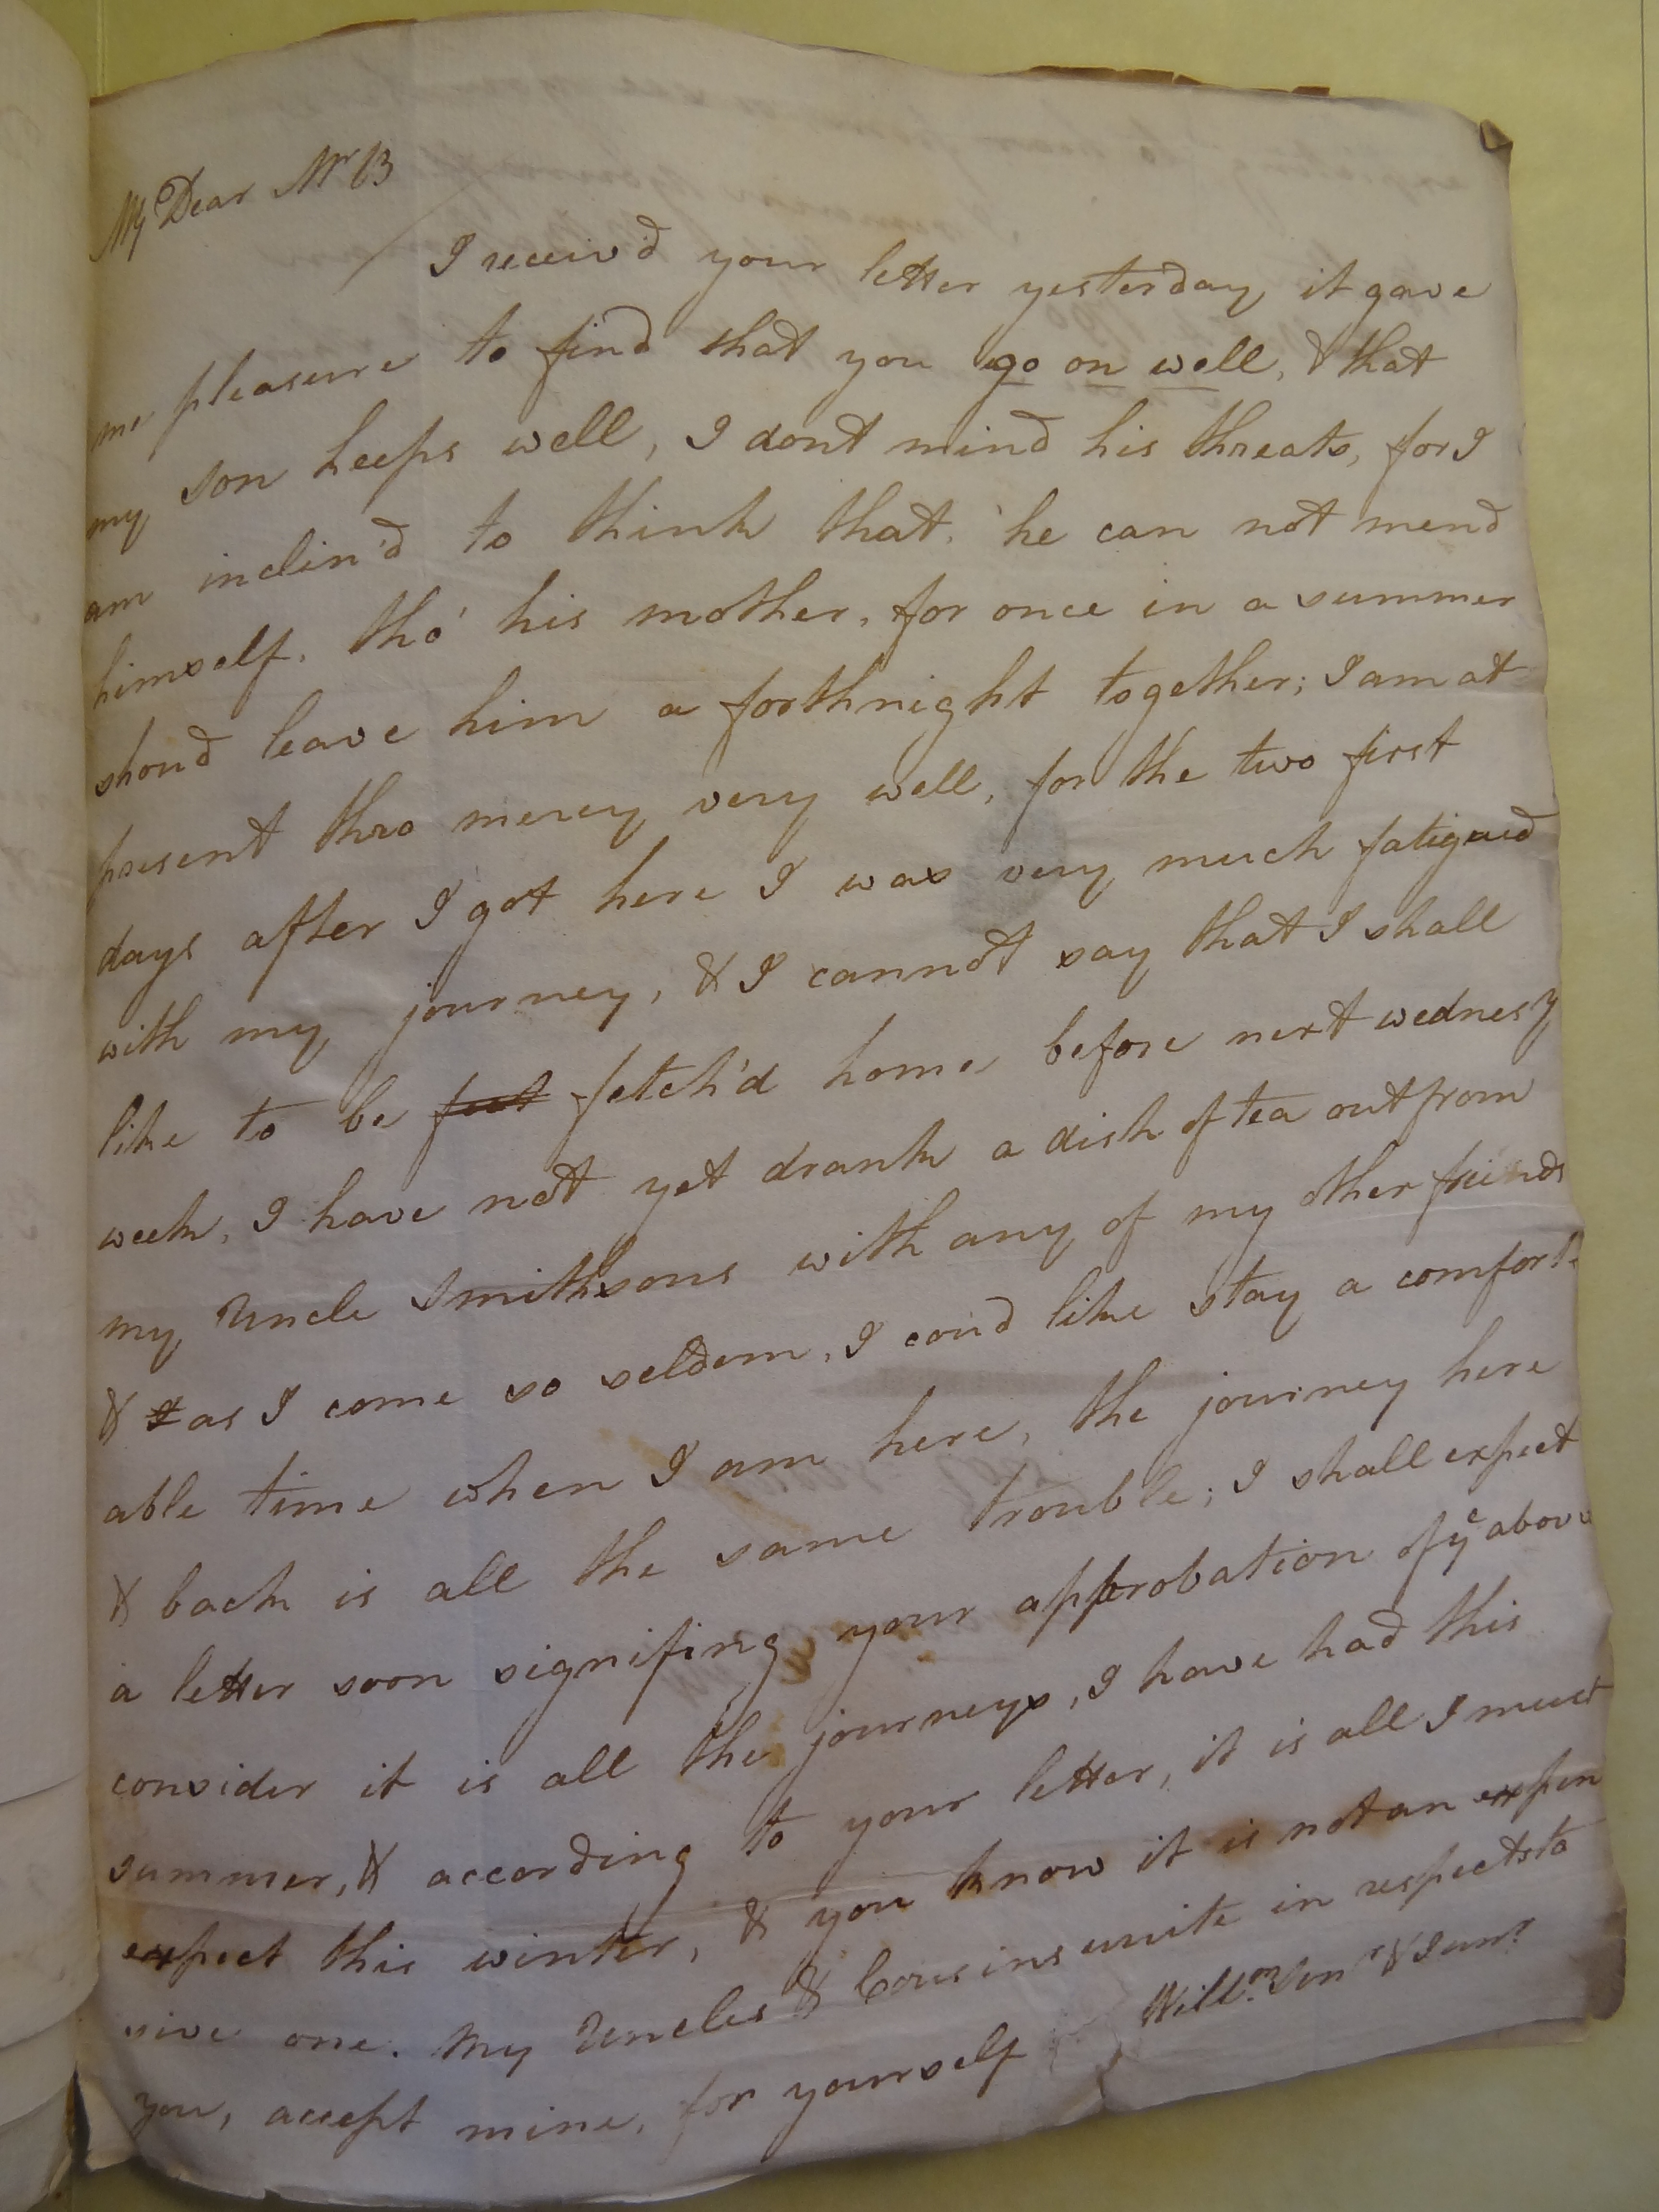 My Dear Mr B
I receiv'd your letter yesterday, it gave
me pleasure to find that you go on well, & that
my son keeps well, I dont mind his threats, for I
am inclin'd to think that, he can not mend
himself, tho' his mother, for once in a summer
shoud leave him a forthnight together; I am at
present thro mercy very well, for the two first
days after I got here I was very much fatigued
with my journey, & I cannot say that I shall
like to be feet fetch'd home before next wednesy
week, I have not yet drank a dish of tea out from
my Uncle Smithsons with any of my other friends
& I as I come so seldom, I coud like stay a comfort-
able time when I am here, the journey here
& back is all the same trouble; I shall expect
a letter soon signifing your approbation of ye above
consider it is all the journeys, I have had this
summer, & according to your letter, it is all I must
expect this winter, & you know it is not an expen
sive one. My Uncles & Cousins unite in respects to
you, accept mine, for yourself Willm Senr & Junr